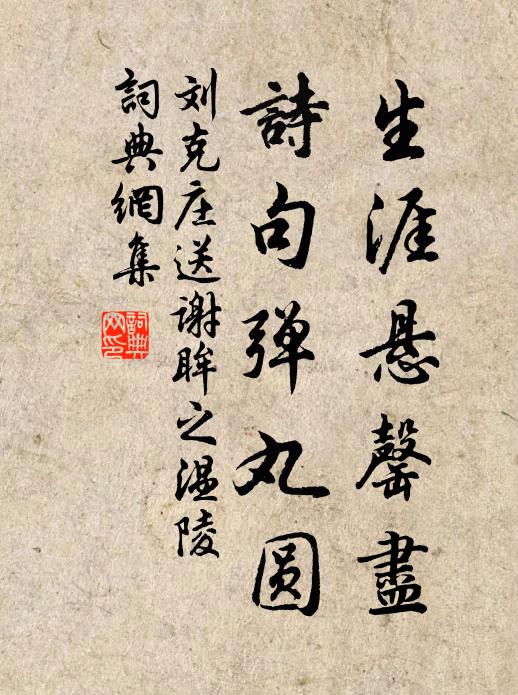 生涯悬罄盡
詩句弹丸圆
刘克庄送谢眸之温陵
詞典網集
詞典网印